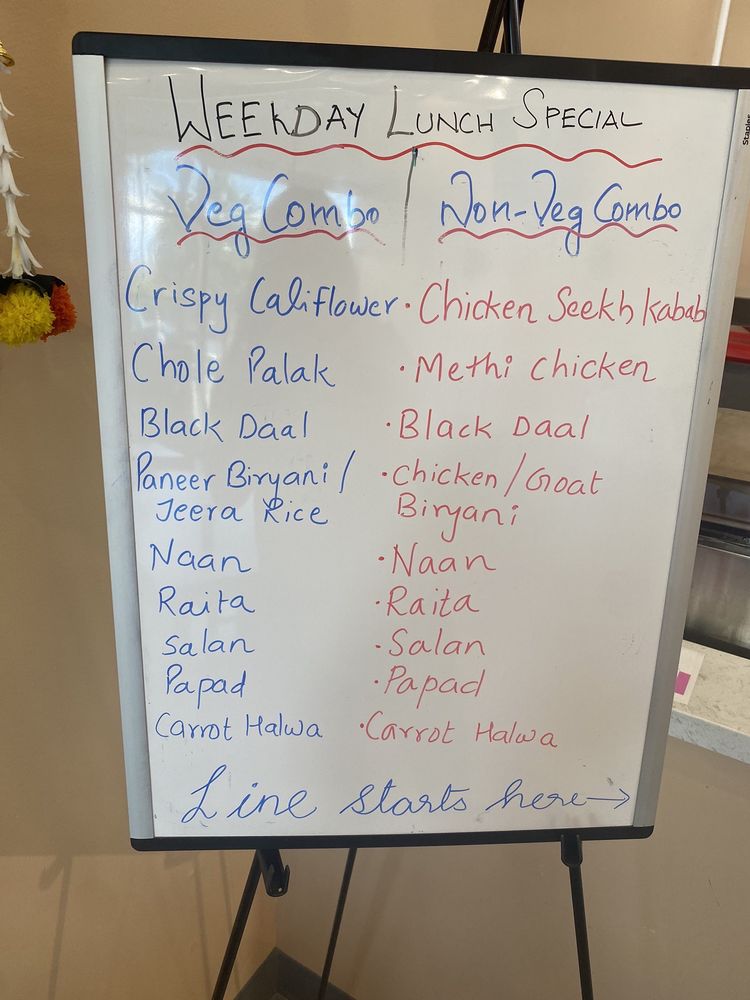 WEEKDAY LUNCH SPECIAL
Veg Combo
Crispy Califlower
Chole Palak
Black Daal
Paneer Biryani/
Jeera Rice
Naan
Raita
Salan
Papad
Carrot Halwa
Non-Veg Combo
· Chicken Seekh Kabab
· Methi Chicken
· Black Daal
· Chicken/Goat
Biryani
· Naan
· Raita
· Salan
· Papad
· Carrot Halwa
Line starts here →
Staples